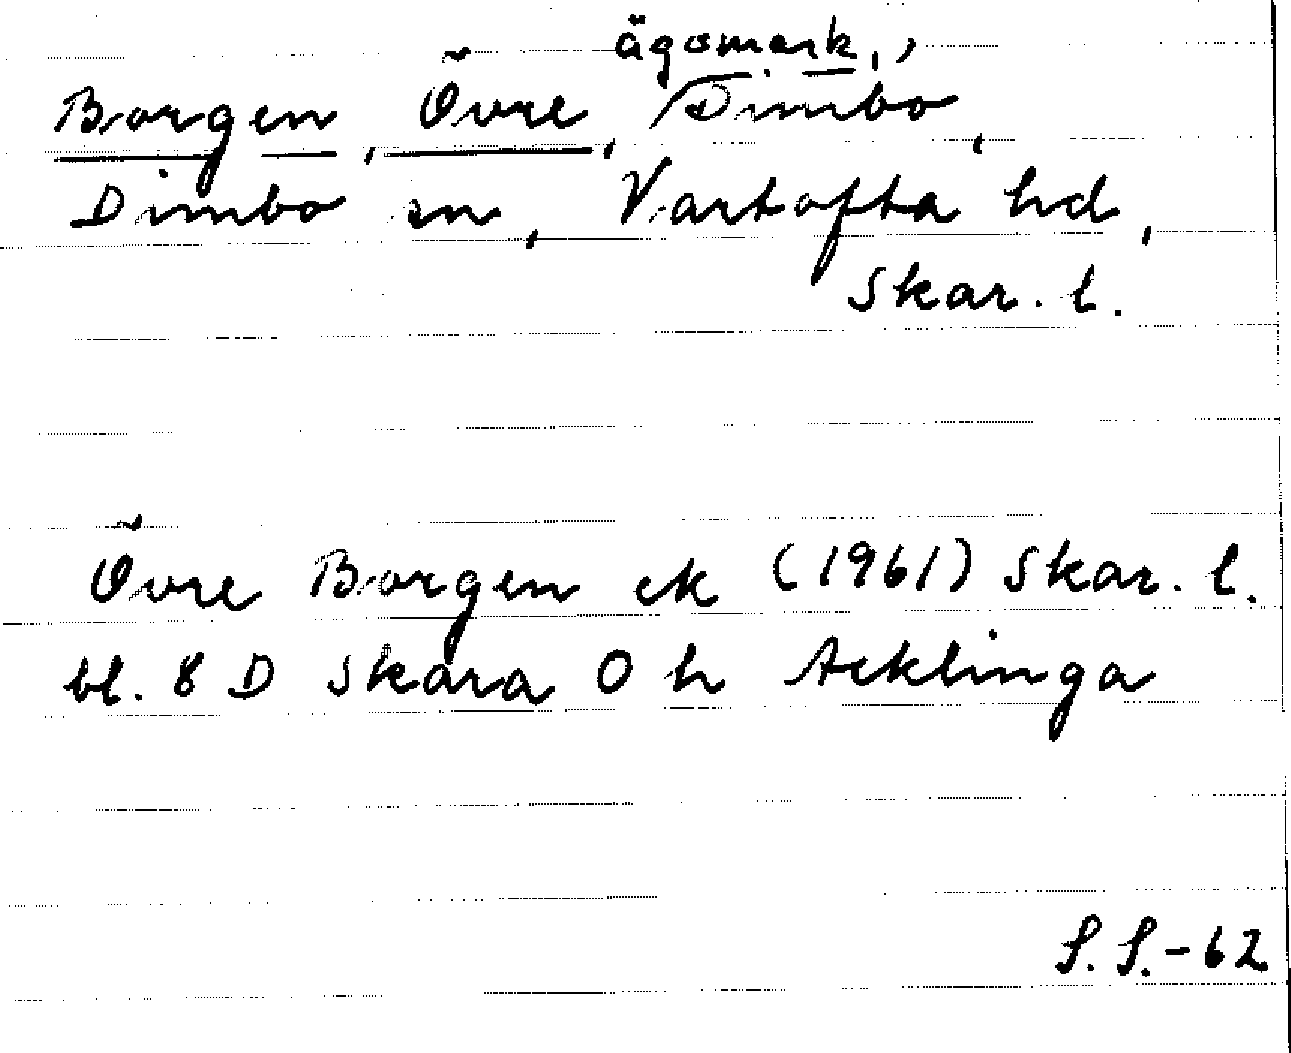 ägomark,,
Borgen, Övre, Dimbo,
Dimbo sn, Vartofta hd,
Skar. l.
Övre Borgen ek (1961) Skar. l.
bl. 8 D Skara 0 h Acklinga
S.S.-62